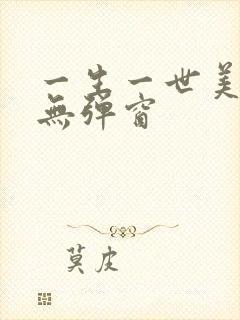 一生一世美
無彈窗
莫皮